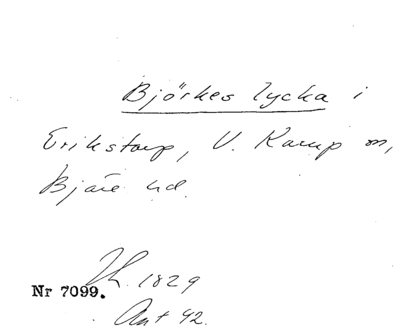 Björkes lycka i
Erikstorp, V. Karup sn,
Bjäre hd.
Jh. 1829
Nr 7099.
Akt 42.